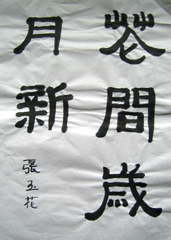 花間歲
月新
張玉花